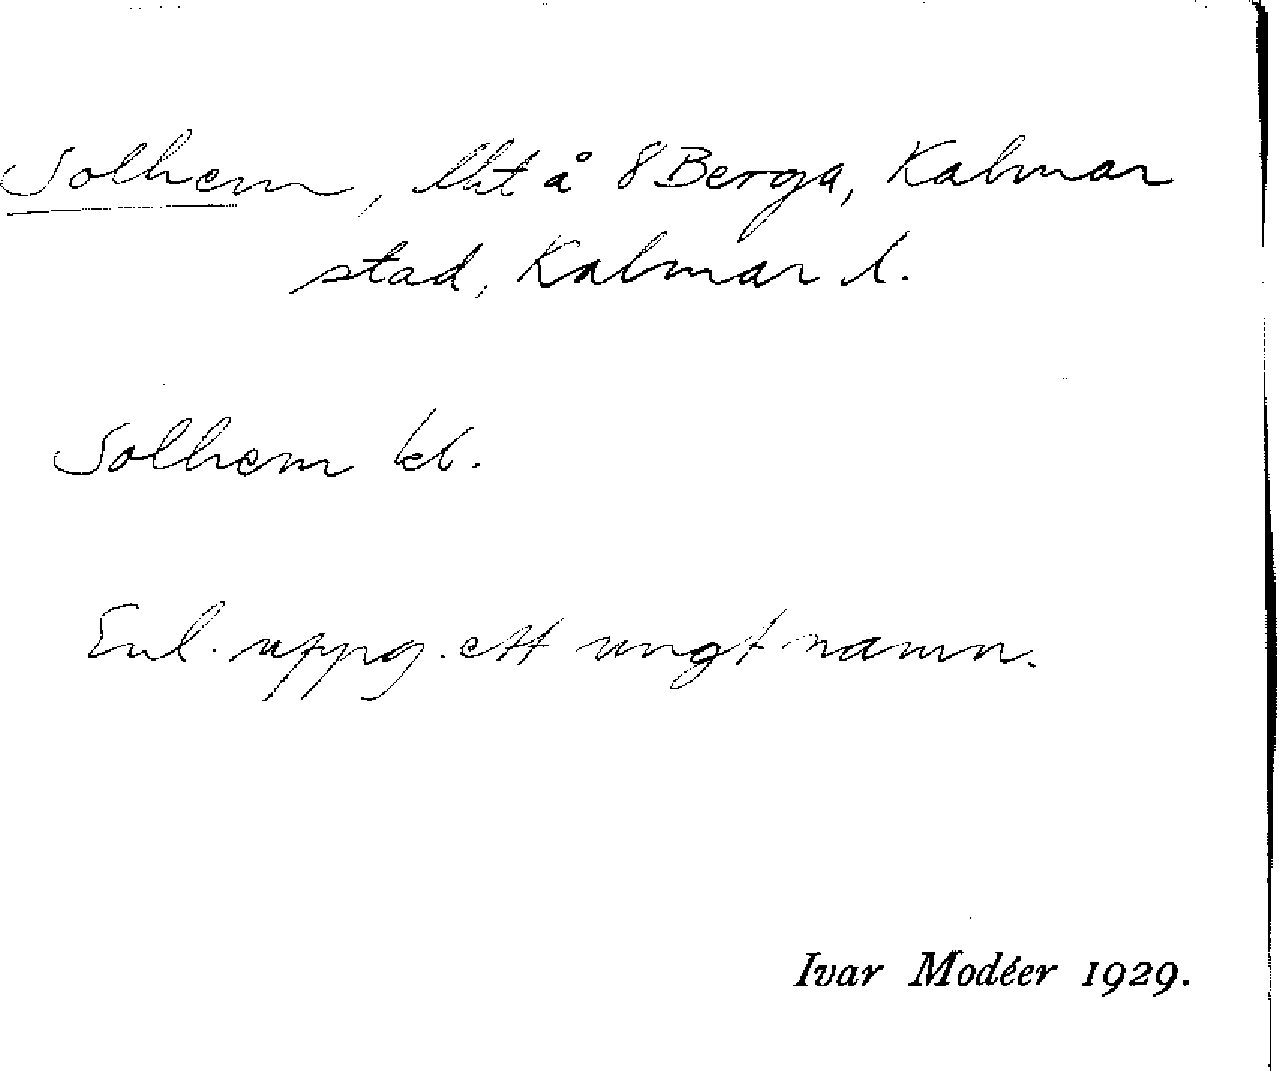 Solhem, lht å 8 Berga, Kalmar
stad, Kalmar l.
Solhem kl.
Enl. uppg. ett ungt namn.
Ivar Modéer 1929.